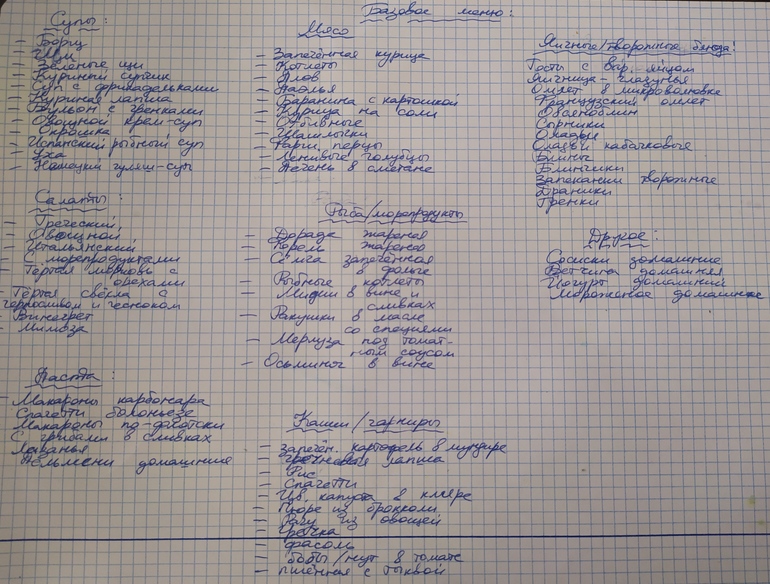 Базовое меню:
Супы:
- Борщ
- Щи
- Зелёные щи
- Куриный супчик
- Суп с фрикадельками
- Куриная лапша
- Бульон с гренками
- Овощной крем-суп
- Окрошка
- Испанский рыбный суп
- Уха
- Немецкий гуляш-суп
Салаты:
- Греческий
- Овощной
- Итальянский
- С морепродуктами
- Тёртая морковь с
орехами
- Тёртая свёкла с
черносливом и чесноком
- Винегрет
- Мимоза
Паста:
- Макароны карбонара
Спагетти болоньезе
Макароны по-флотски
С грибами в сливках
Лазанья
Пельмени домашние
Мясо
- Запечённая курица
- Котлеты
- Плов
- Паэлья
- Баранина с картошкой
- Курица на соли
- Отбивные
- Шашлычки
- Фарш. перцы
- Ленивые голубцы
- Печень в сметане
Рыба/морепродукты
- Дорада жареная
- Форель жареная
- Сёмга запечённая
в фольге
- Рыбные котлеты
- Мидии в вине и
сливках
- Ракушки в масле
со специями
- Мерлуза под томат-
ным соусом
- Осьминог в вине
Каши/гарниры
- Запечён. картофель в мундире
- лапша
- Рис
- Спагетти
- Цв. капуста в кляре
- Пюре из брокколи
- Рагу из овощей
- Гречка
- фасоль
- бобы/нут в томате
- пшённая с тыквой
Яичные/творожные блюда:
Тосты с вар. яйцом
Яичница-глазунья
Омлет в микроволновке
Французский омлет
Овсяноблин
Сырники
Оладьи
Оладьи кабачковые
Блины
Блинчики
Запеканки творожные
Драники
Гренки
Другое:
Сосиски домашние
Ветчина домашняя
Йогурт домашний
Мороженое домашнее